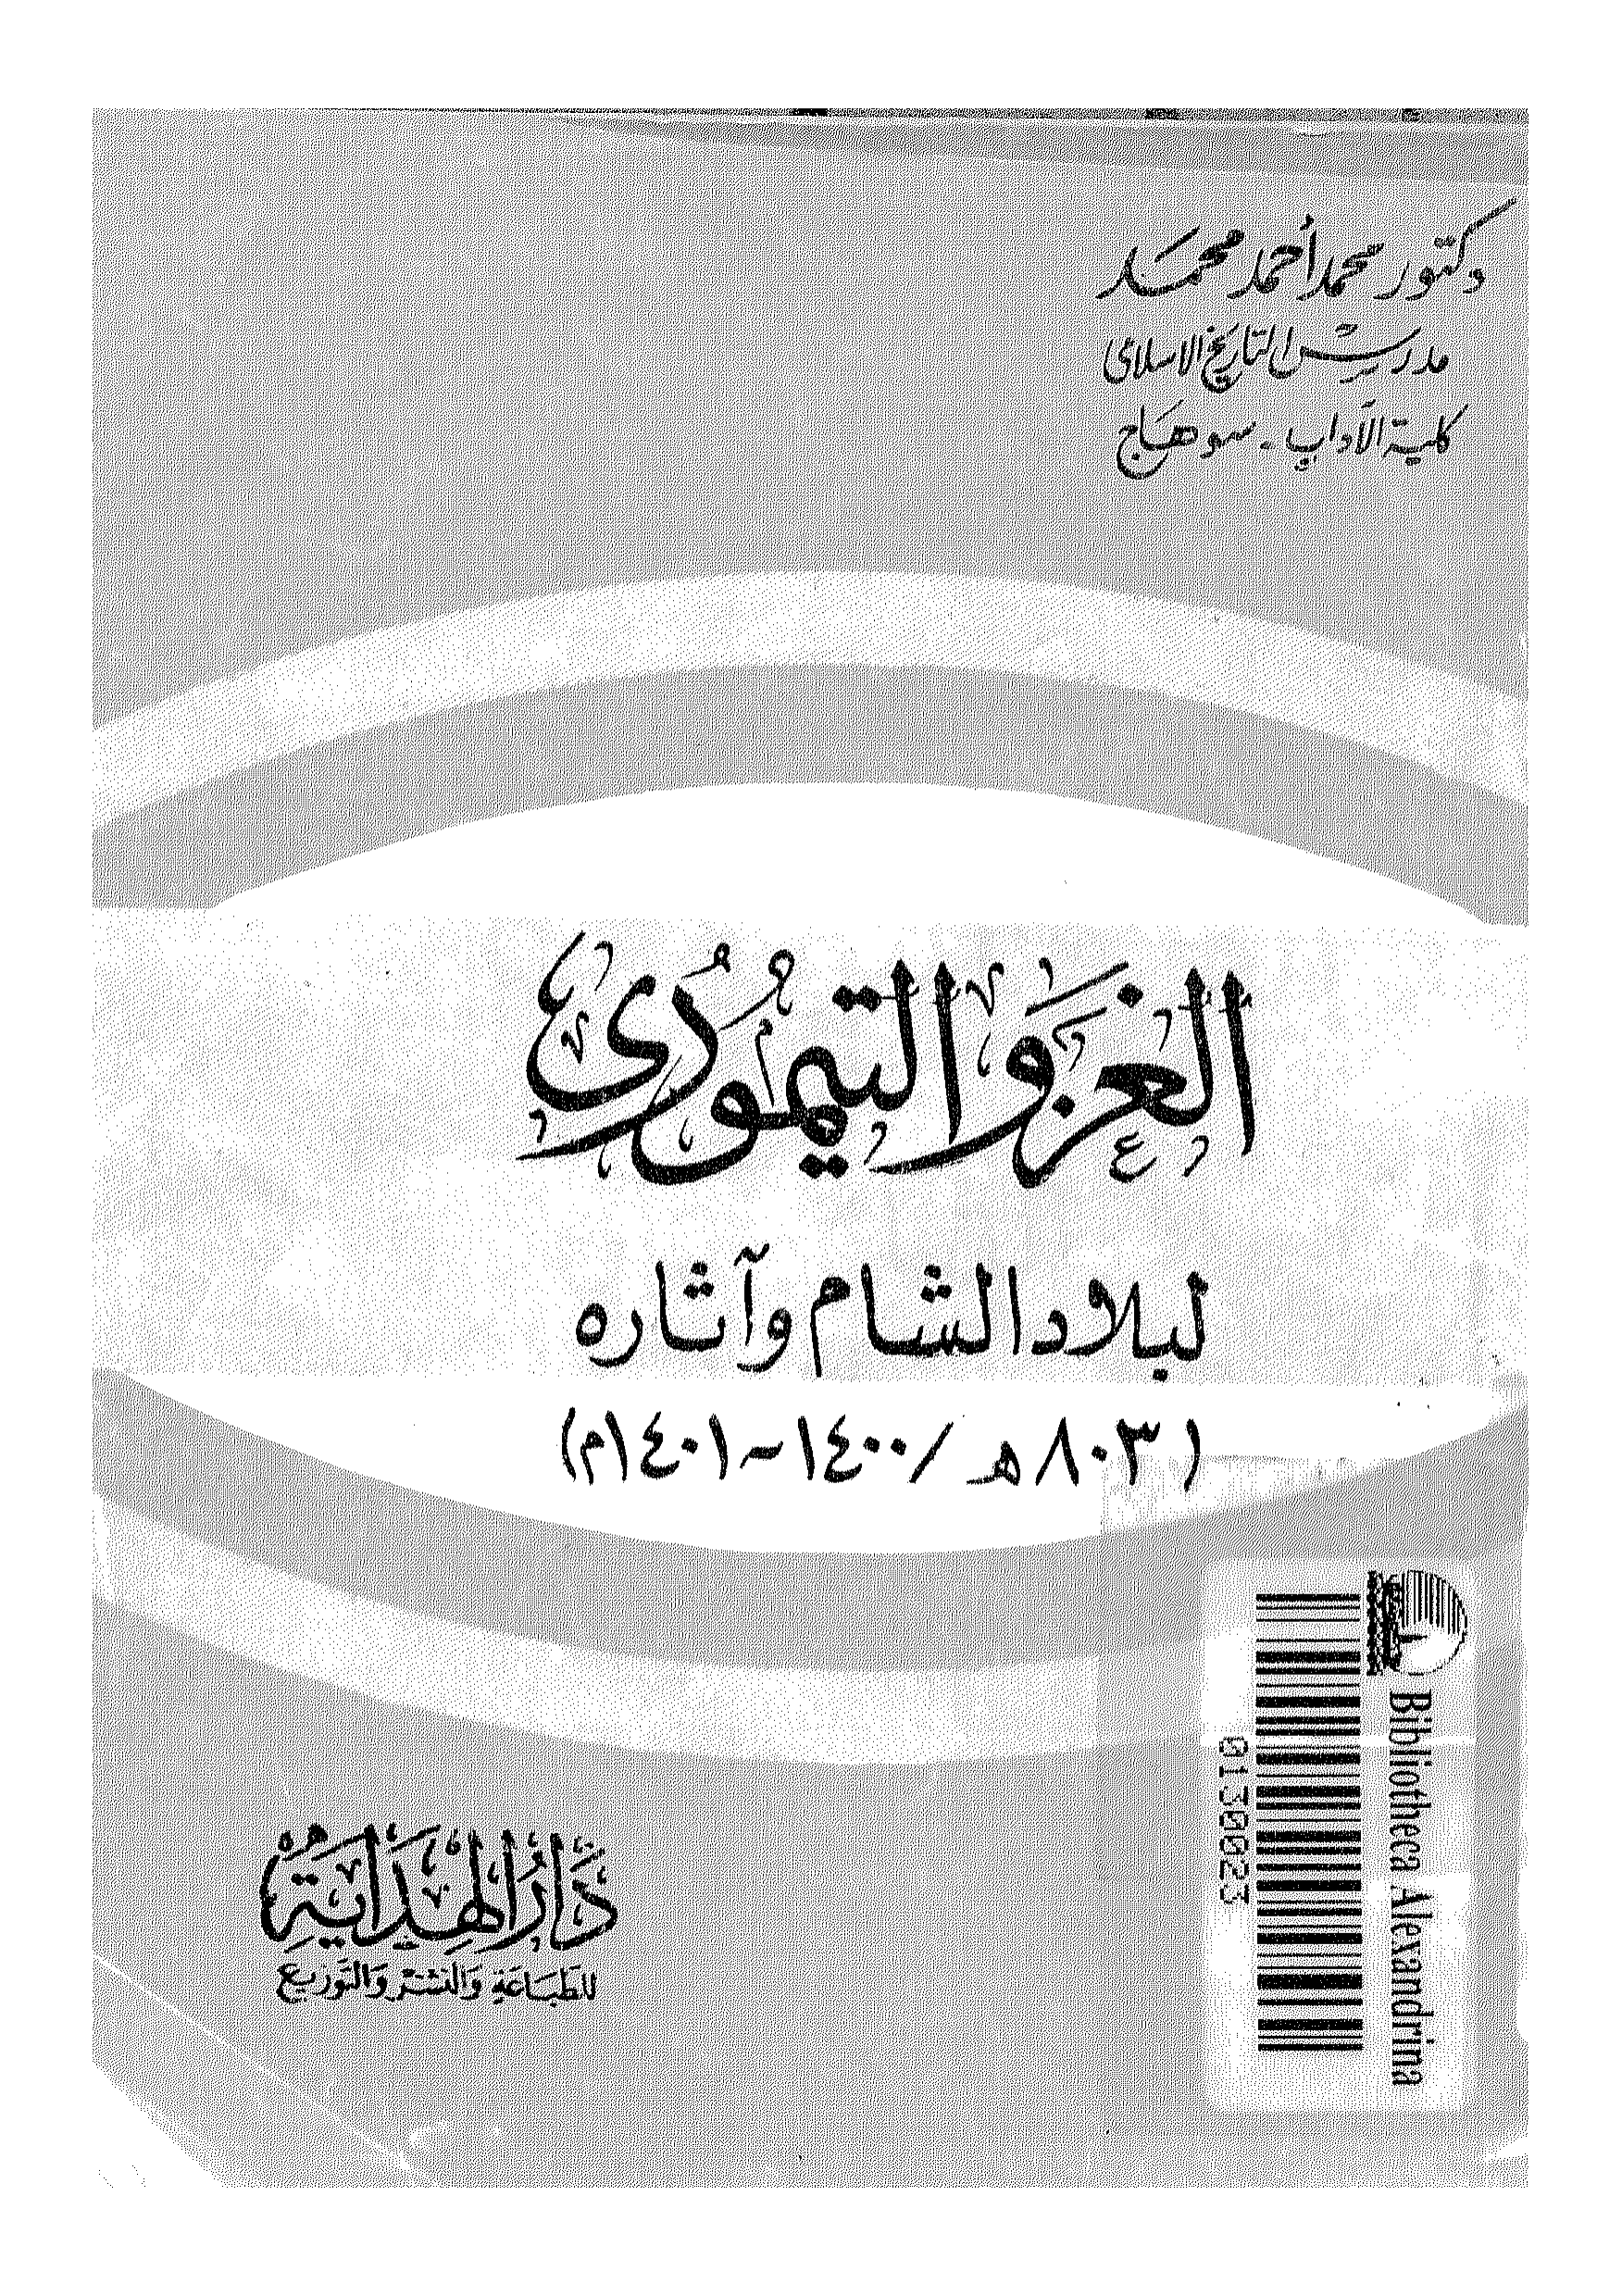 دكتور محمد أحمد محمد
مدرس التاريخ الاسلامى
كلية الآداب - سوهاج
الغزو التيمورى
لبلاد الشام وآثاره
(٨٠٣ هـ / ١٤٠٠ ~ ١٤٠١م)
دَارُ الهِدَايَةِ
للطباعة والنشر والتوزيع
Bibliotheca Alexandrina
0130023